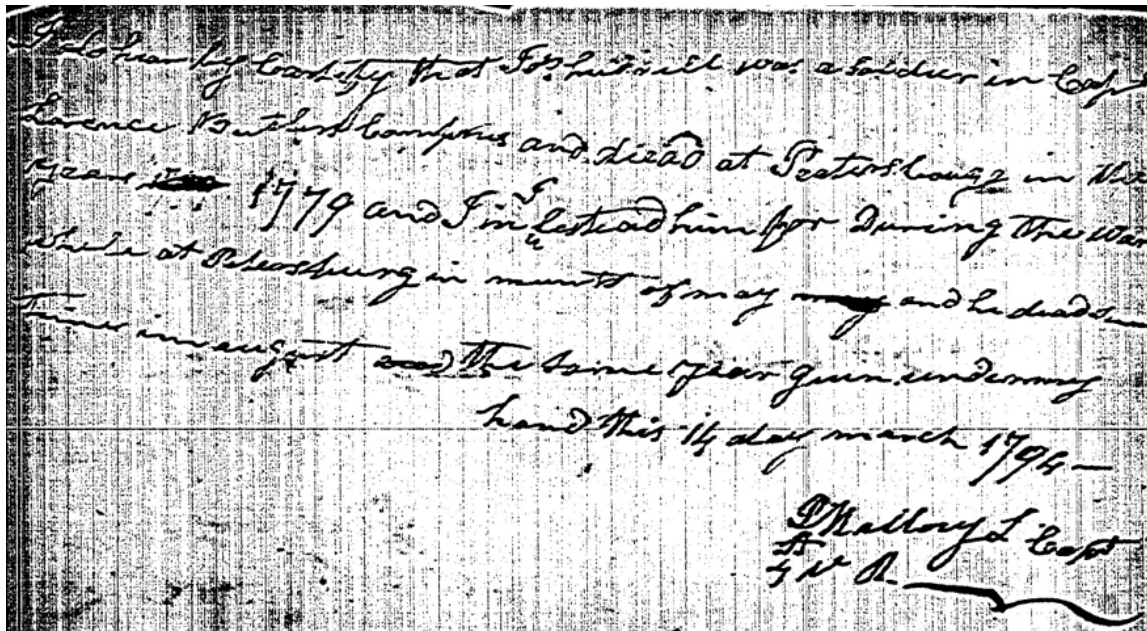 I do hearby Certify that Jos hutsill was a soldier in Cap
Larence Butlers Companys and diead at Peatersbourg in the
year 1779 and I in lestead him for During the War
while at Petersburg in munt of may and he diead sum
time in augest the same year giun under my
hand this 14 day march 1794 —
P Mallory L Capt
R.